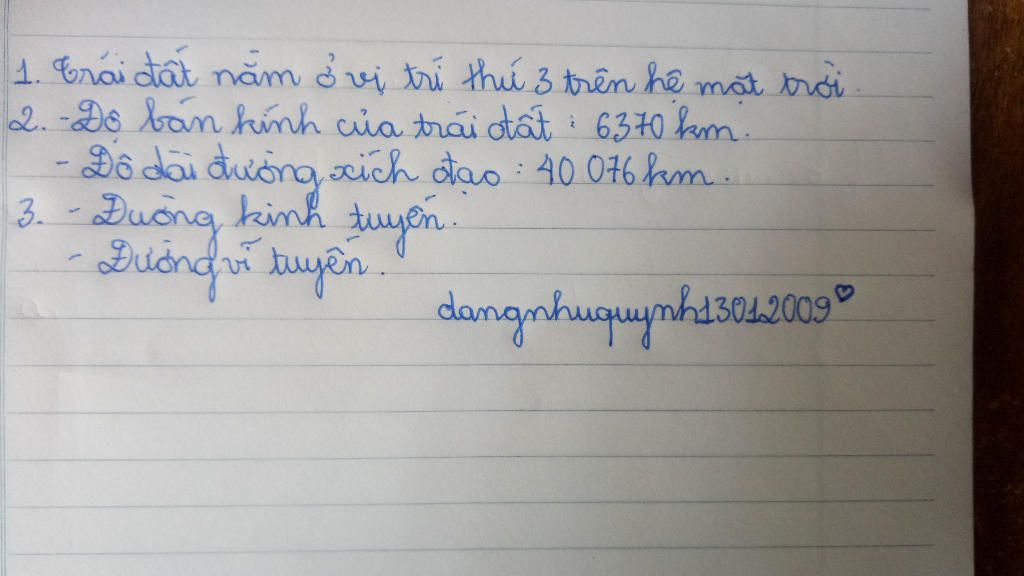 1. Trái đất nằm ở vị trí thứ 3 trên hệ mặt trời.
2. - Độ bán kính của trái đất : 6370 km.
- Độ dài đường xích đạo : 40 076 km.
3. - Đường kinh tuyến.
- Đường vĩ tuyến.
dangnhuquynh13012009♡